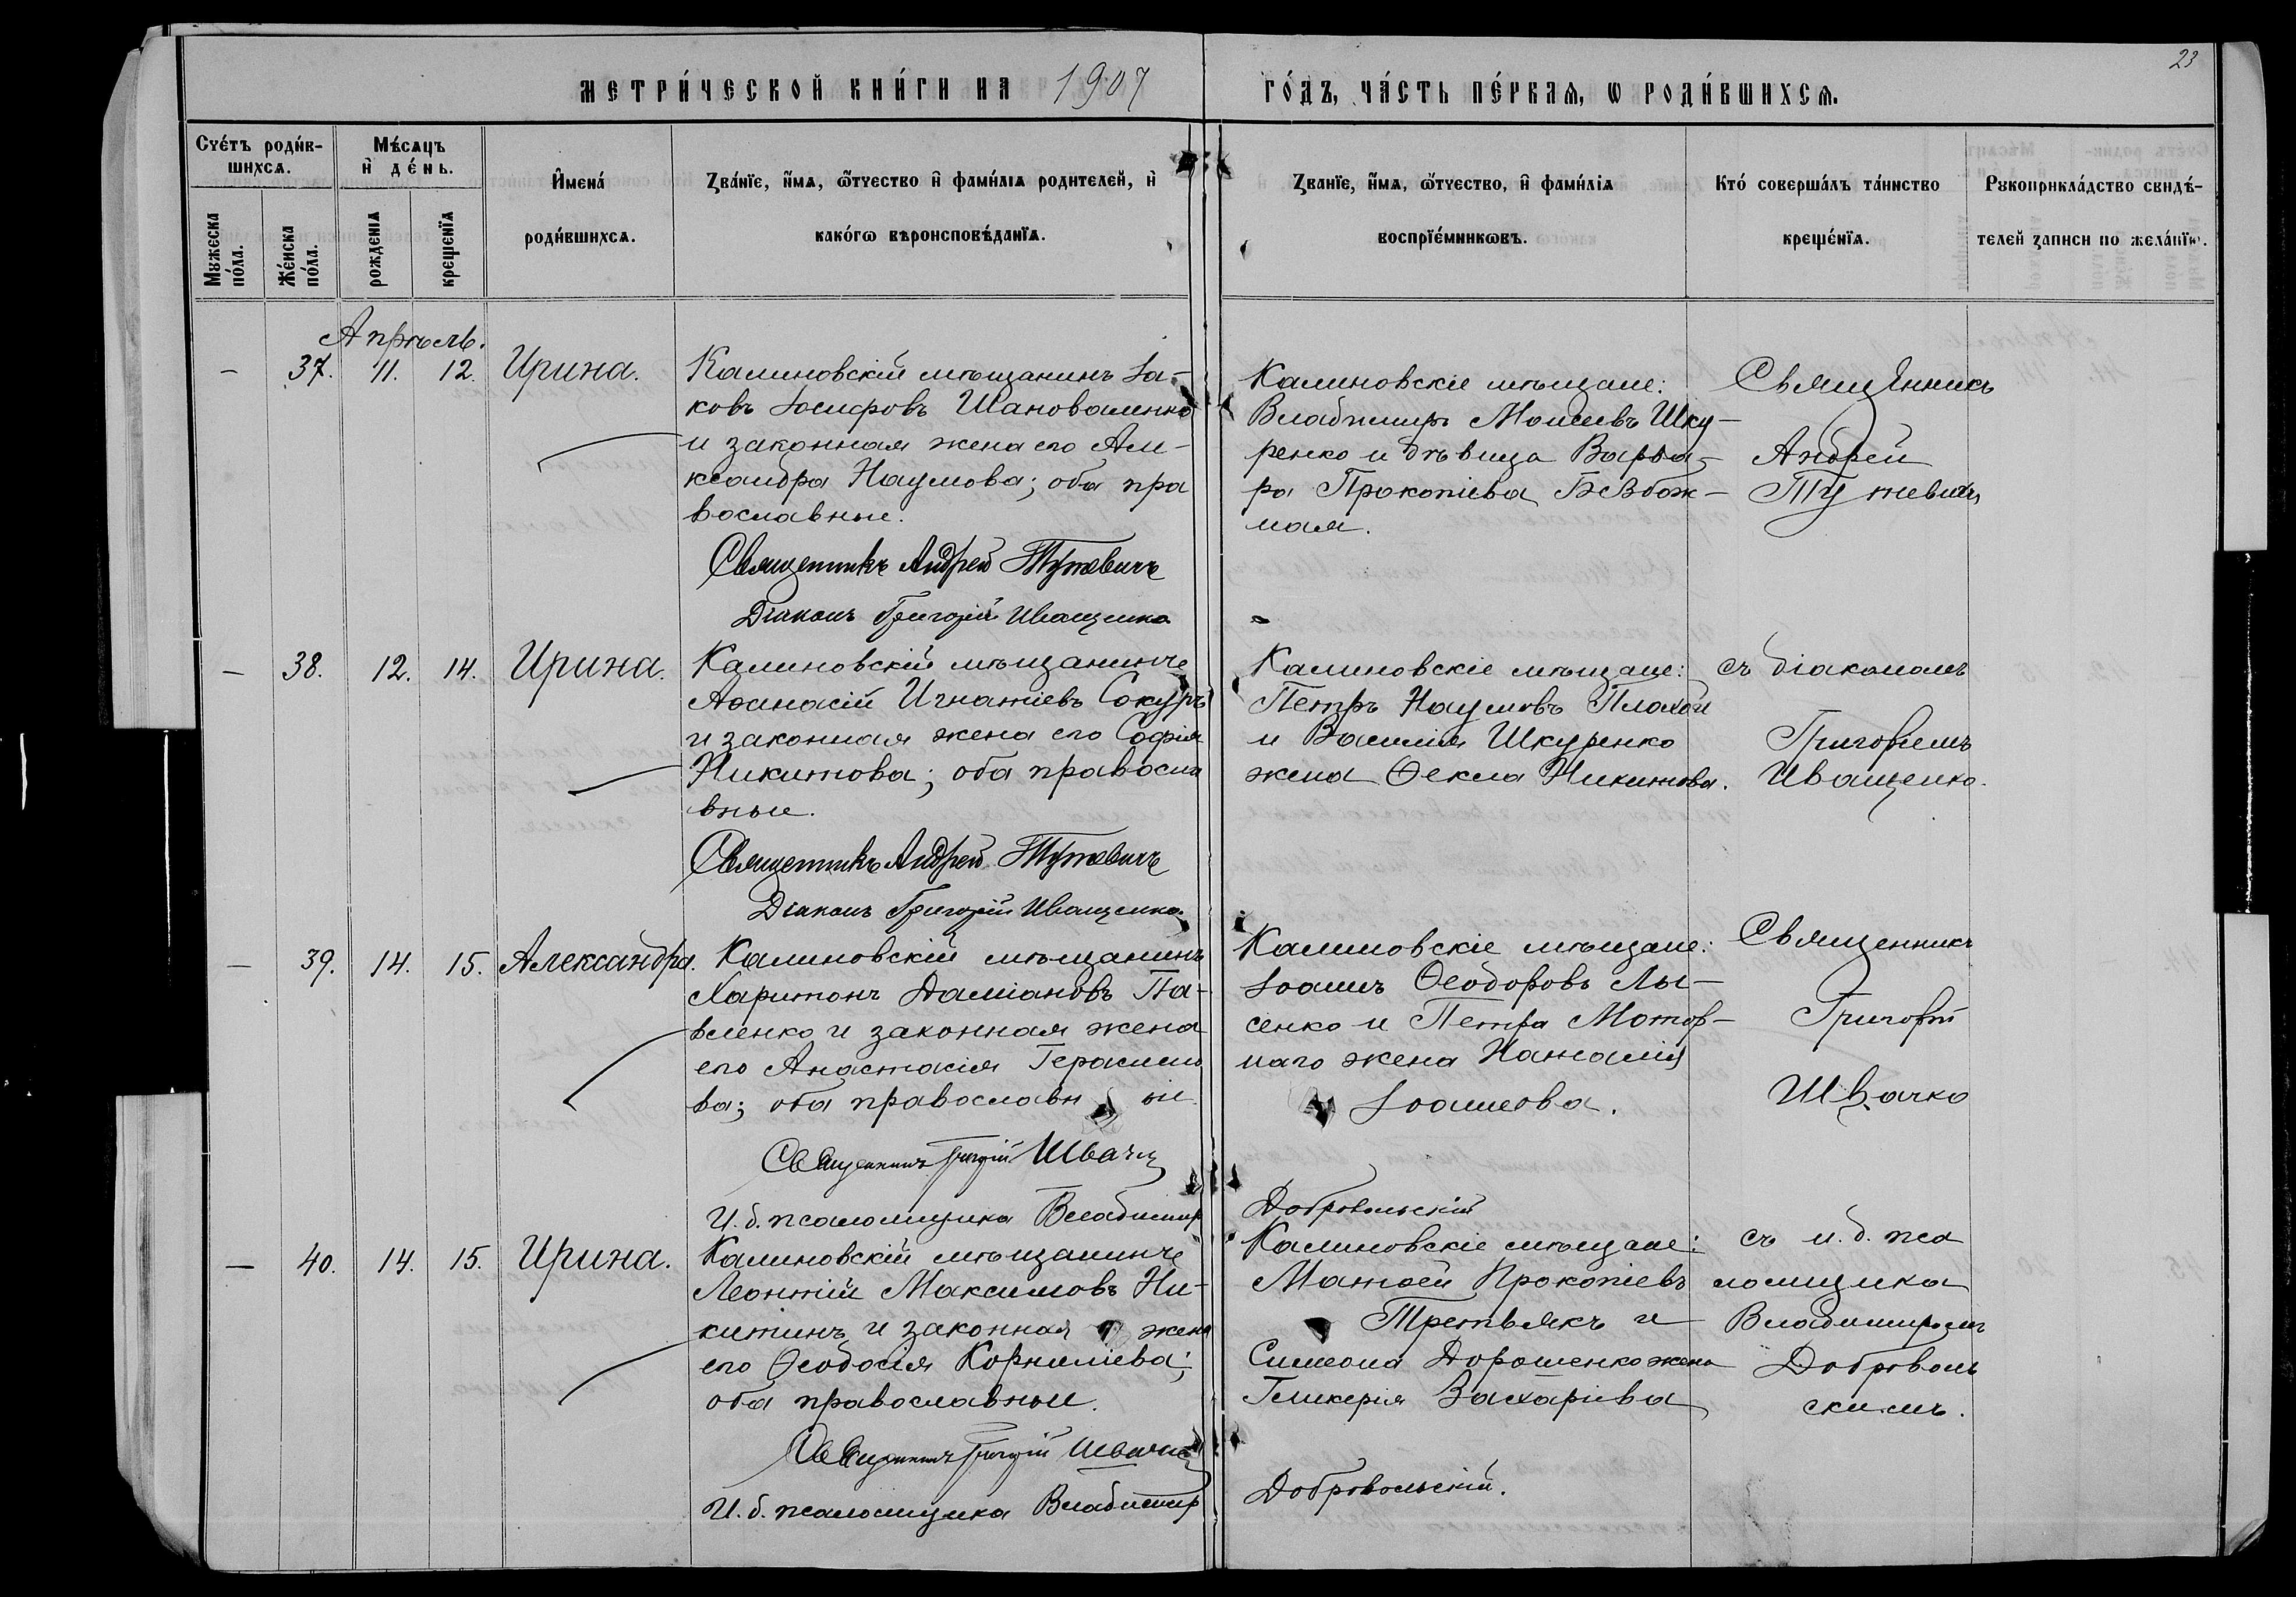 23
МЕТРИ́ЧЕСКОЙ КНИ́ГИ НА 1907 ГО́ДЪ, ЧА́СТЬ ПЕ́РВАѦ, Ѡ РОДИ́ВШИХСѦ.
Счéтъ роди́в-
шихсѧ.
Мужеска по́ла.
Же́нска по́ла.
Мѣ́сѧцъ
и де́нь.
рожденїѧ
крещенїѧ
Имена́
роди́вшихсѧ.
Зва́нїе, и́мѧ, ѻ́тчество и фами́лїѧ родителей, и
како́гѡ вѣроисповѣ́данїѧ.
Званїе, и́мѧ, ѻ́тчество, и фами́лїѧ
воспрїе́мникѡвъ.
Кто́ соверша́лъ та́инство
креще́нїѧ.
Рукоприкла́дство свидѣ́-
телей записи по жела́нїю.
Апрѣль.
— 37. 11. 12. Ирина.
Калиновскій мѣщанинъ Іа-
ковъ Іосифовъ Шаповаленко
и законная жена его Але-
ксандра Наумова; оба пра
вославные.
Священникъ Андрей Тутевичъ
Діаконъ Григорій Иващенко
Калиновскіе мѣщане:
Владимиръ Моисеевъ Шку-
ренко и дѣвица Варва-
ра Прокопіева Безбож-
ная.
Священникъ
Андрей
Тутевичъ
— 38. 12. 14. Ирина.
Калиновскій мѣщанинъ
Аѳанасій Игнатіевъ Сокуръ
и законная жена его Софія
Никитова; оба правосла
вные.
Священникъ Андрей Тутевичъ
Діаконъ Григорій Иващенко.
Калиновскіе мѣщане:
Петръ Наумовъ Плохой
и Василія Шкуренко
жена Ѳекла Никитова.
съ діакономъ
Григоріемъ
Иващенко.
— 39. 14. 15. Александра.
Калиновскій мѣщанинъ
Харитонъ Даміановъ Па-
вленко и законная жена
его Анастасія Герасимо
ва; оба православн ые
Священникъ Григорій Швачко
И. д. псаломщика Владимир Добровольскій
Калиновскіе мѣщане:
Іоаннъ Ѳеодоровъ Лы-
сенко и Петра Мотор-
наго жена Наталія
Іоаннова.
Священникъ
Григорій
Швачко
— 40. 14. 15. Ирина.
Калиновскій мѣщанинъ
Леонтій Максимовъ Ни-
китинъ и законная жена
его Ѳеодосія Корниліева;
оба православные.
Священникъ Григорій Швачко
И. д. псаломщика Владимир Добровольскій.
Калиновскіе мѣщане:
Матѳей Прокопіевъ
Третьякъ и
Симеона Дорошенко жена
Гликерія Захаріева
съ и. д. пса
ломщика
Владимиромъ
Доброволь
скимъ.